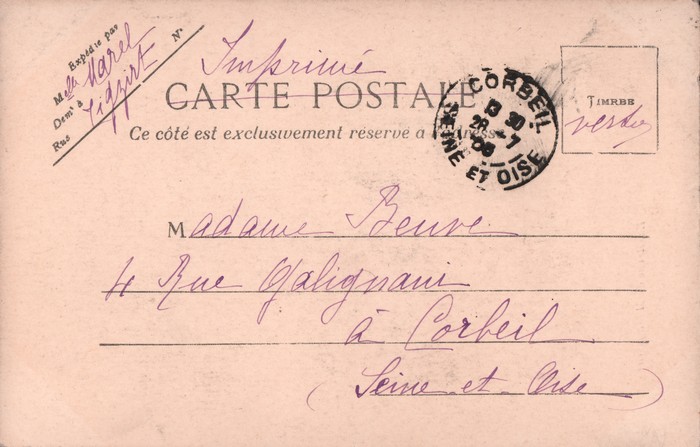 Expédié par
Melle Marel
Demt à Tigzirt
Rue N°
Imprimé
CARTE POSTALE
Ce côté est exclusivement réservé à l'adresse
TIMBRE
verso
CORBEIL
13 30
28 - 7
SEINE ET OISE
Madame Beuve
4 Rue Galignani
à Corbeil
(Seine-et-Oise)